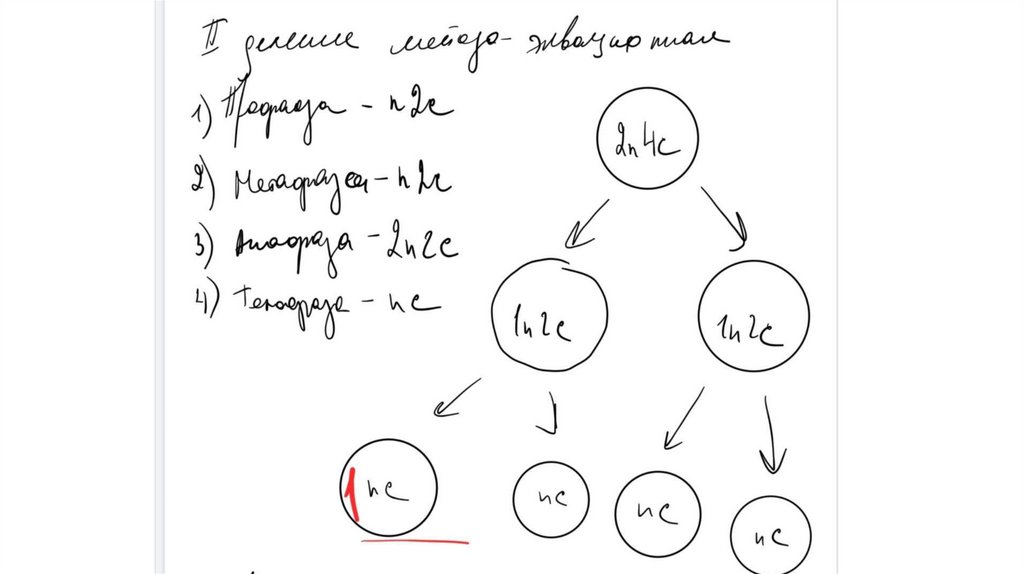 II деление мейоза - эквационал
1) Профаза - n2c
2) Метафаза - n2c
3) Анафаза - 2n2c
4) Телофаза - nc
2n4c
1n2c
1n2c
1nc
nc
nc
nc